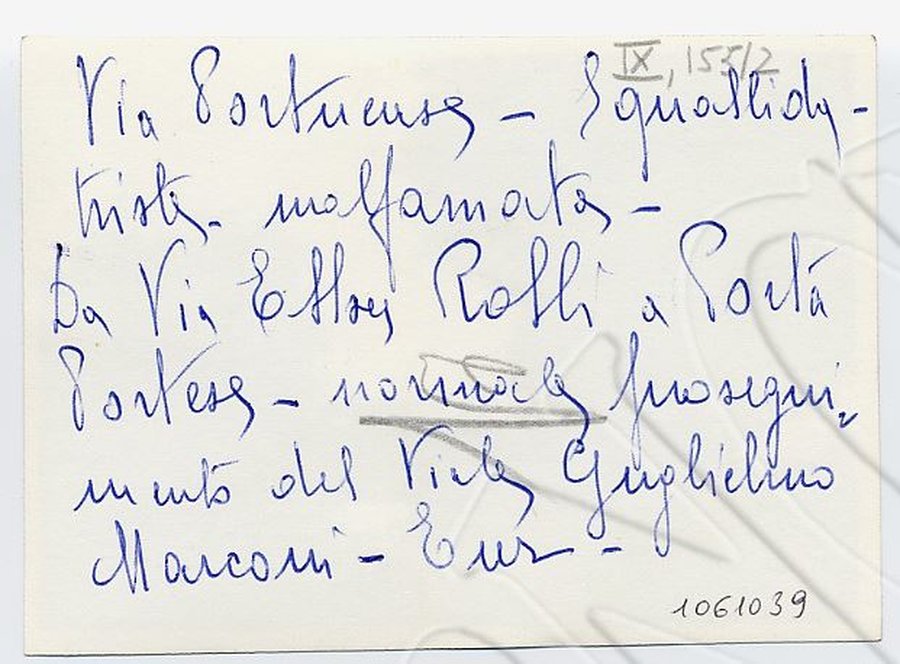 IX, 155/2
Via Portuense - Squallida -
triste - malfamata -
Da Via Ettore Rolli a Porta
Portese - normale prosegui-
mento del Viale Guglielmo
Marconi - Eur -
1061039